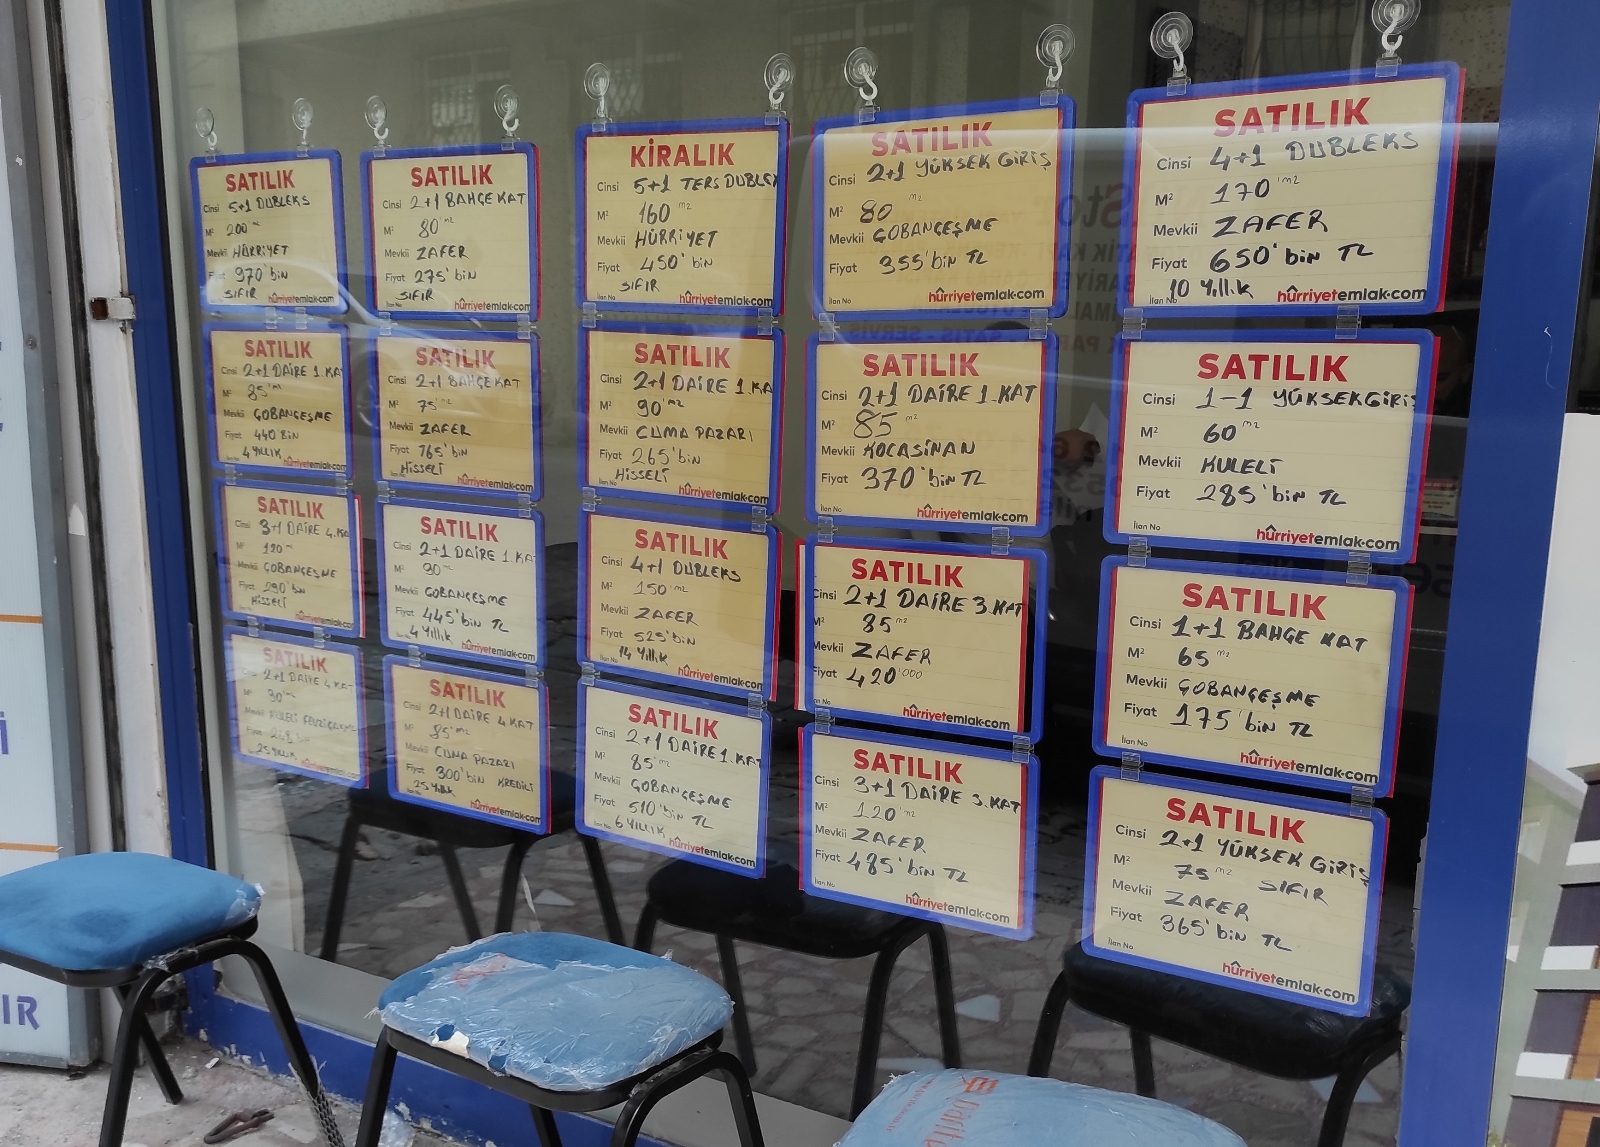 SATILIK
Cinsi 5+1 DUBLEKS
M² 200 m2
Mevkii HÜRRİYET
Fiyat 970'bin
SIFIR
hürriyetemlak.com
SATILIK
Cinsi 2+1 DAİRE 1.KA
M² 85 m2
Mevkii ÇOBANÇEŞME
Fiyat 440 BİN
4 YILLIK hürriyetemlak.com
SATILIK
Cinsi 3+1 DAİRE 4.KA
M² 120
Mevkii ÇOBANÇEŞME
Fiyat 290'bin
HİSSELİ
hürriyetemlak.co
SATILIK
Cinsi 2+1 DAİRE 4 KAT
M² 90
Mevkii KULELİ
Fiyat
25 YILLIK
hürriyetemlak.com
SATILIK
Cinsi 2+1 BAHÇE KAT
M² 80 m2
Mevkii ZAFER
Fiyat 275'bin
SIFIR
hürriyetemlak.com
SATILIK
Cinsi 2+1 BAHÇE KAT
M² 75 m2
Mevkii ZAFER
Fiyat 765'bin
HİSSELİ
hürriyetemlak.com
SATILIK
Cinsi 2+1 DAİRE 1.KA
M² 90
Mevkii ÇOBANÇEŞME
Fiyat 445'bin TL
4 Yıllık
hürriyetemlak.com
SATILIK
Cinsi 2+1 DAİRE 4.KAT
M² 85 m2
Mevkii CUMA PAZARI
Fiyat 300'bin KREDİLİ
25 Yıllık
hürriyetemlak.com
KİRALIK
Cinsi 5+1 TERS DUBLEX
M² 160 m2
Mevkii HÜRRİYET
Fiyat 450'bin
SIFIR
İlan No hürriyetemlak.com
SATILIK
Cinsi 2+1 DAİRE 1.KA
M² 90 m2
Mevkii CUMA PAZARI
Fiyat 265'bin
HİSSELİ
İlan No hürriyetemlak.com
SATILIK
Cinsi 4+1 DUBLEKS
M² 150 m2
Mevkii ZAFER
Fiyat 525'bin
14 Yıllık
İlan No hürriyetemlak.com
SATILIK
Cinsi 2+1 DAİRE 1.KAT
M² 85 m2
Mevkii ÇOBANÇEŞME
Fiyat 510'bin TL
6 YILLIK
hürriyetemlak.com
SATILIK
Cinsi 2+1 YÜKSEK GİRİŞ
M² 80 m2
Mevkii ÇOBANÇEŞME
Fiyat 355'bin TL
İlan No hürriyetemlak.com
SATILIK
Cinsi 2+1 DAİRE 1.KAT
M² 85 m2
Mevkii KOCASİNAN
Fiyat 370'bin TL
İlan No hürriyetemlak.com
SATILIK
Cinsi 2+1 DAİRE 3.KAT
M² 85 m2
Mevkii ZAFER
Fiyat 420'000
hürriyetemlak.com
SATILIK
Cinsi 3+1 DAİRE 3.KAT
M² 120 m2
Mevkii ZAFER
Fiyat 485'bin TL
İlan No hürriyetemlak.com
SATILIK
Cinsi 4+1 DUBLEKS
M² 170 m2
Mevkii ZAFER
Fiyat 650'bin TL
10 Yıllık
İlan No hürriyetemlak.com
SATILIK
Cinsi 1-1 YÜKSEK GİRİŞ
M² 60 m2
Mevkii KULELİ
Fiyat 285'bin TL
İlan No hürriyetemlak.com
SATILIK
Cinsi 1+1 BAHÇE KAT
M² 65 m2
Mevkii ÇOBANÇEŞME
Fiyat 175'bin TL
İlan No hürriyetemlak.com
SATILIK
Cinsi 2+1 YÜKSEK GİRİŞ
M² 75 m2 SIFIR
Mevkii ZAFER
Fiyat 365'bin TL
İlan No hürriyetemlak.com